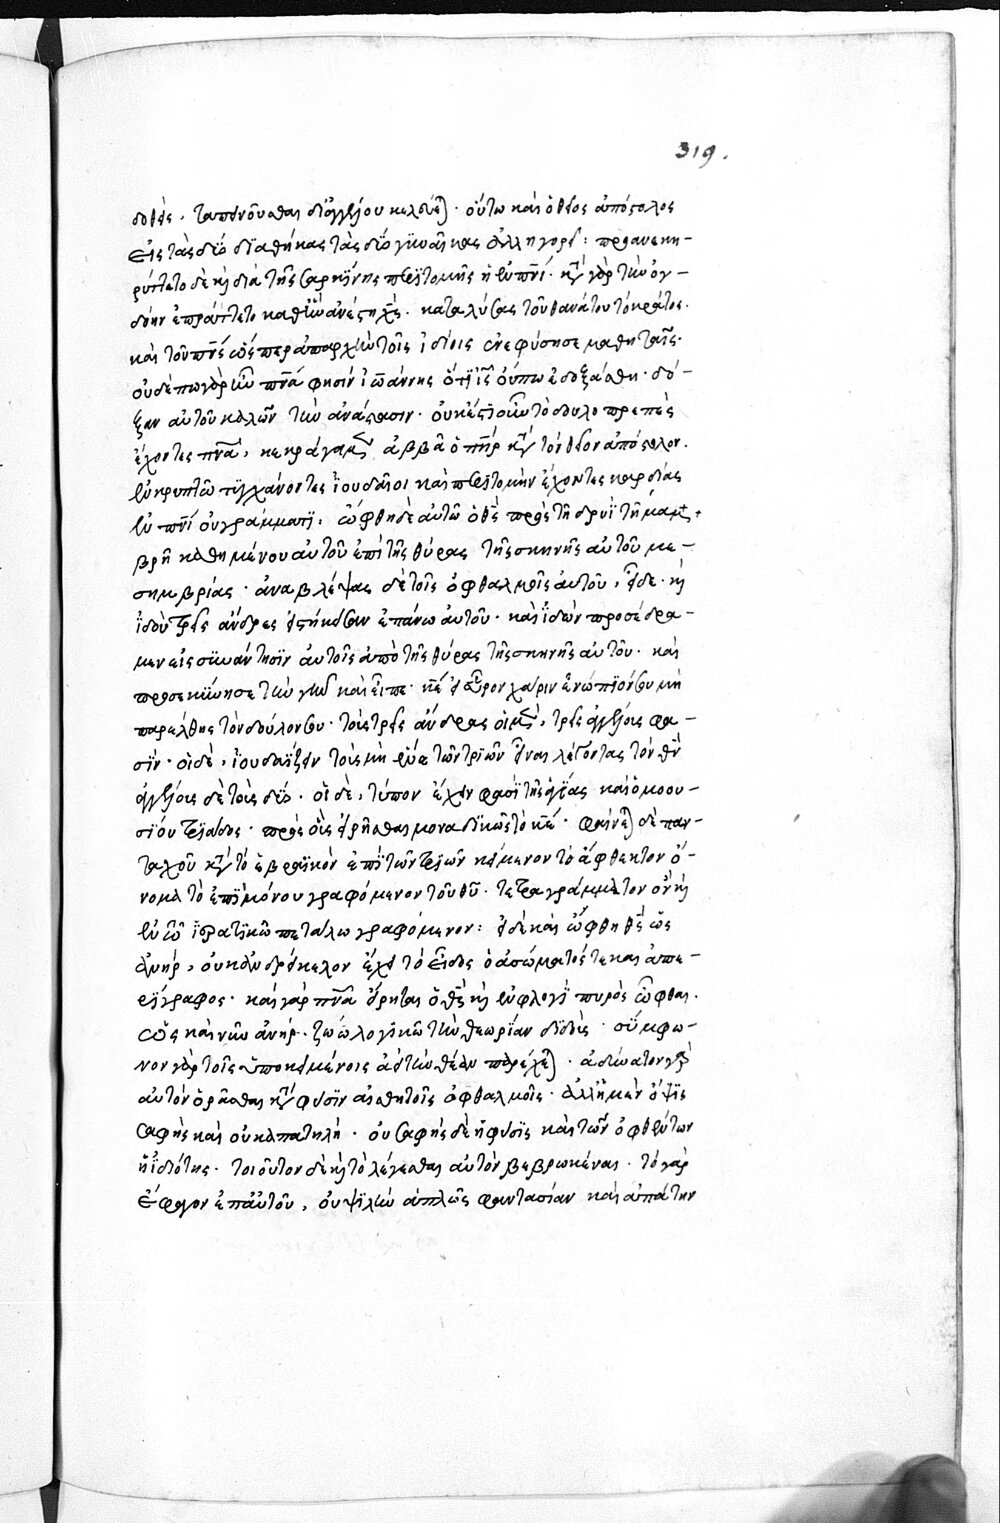 319.
δοθὲν, ταπεινοῦσθαι δι' ἀγγέλου κελεύεται· οὕτω καὶ ὁ θεῖος ἀπόστολος
εἰς τὰς δύο διαθήκας τὰς δύο γυναῖκας ἀλληγορεῖ: προανεκη-
ρύττετο δὲ καὶ διὰ τῆς σαρκίνης περιτομῆς ἡ ἐν πνι· κατὰ γὰρ τὴν ὀγ-
δόην ἐπράττετο καθ' ἣν ἀνέστη χς· καταλύσας τοῦ θανάτου τὸ κράτος·
καὶ τοῦ πνς ὥσπερ ἀπαρχὴν τοῖς ἰδίοις ἐνεφύσησε μαθηταῖς·
οὐδέπω γὰρ ἦν πνα φησὶν ἰωάννης ὅτι ις οὔπω ἐδοξάσθη· δό-
ξαν αὐτοῦ καλῶν τὴν ἀνάστασιν· οὐκέτι οὖν τὸ δουλοπρεπὲς
ἔχοντες πνα, κεκράγαμεν ἀββᾶ ὁ πηρ κατὰ τὸν θεῖον ἀπόστολον·
ἐν κρυπτῶ τυγχάνοντες ἰουδαῖοι καὶ περιτομὴν ἔχοντες καρδίας
ἐν πνι οὐ γράμματι: ὤφθη δὲ αὐτῶ ὁ θς πρὸς τῆ δρυὶ τῆ μαμ-
βρῆ καθημένου αὐτοῦ ἐπὶ τῆς θύρας τῆς σκηνῆς αὐτοῦ με-
σημβρίας· ἀναβλέψας δὲ τοῖς ὀφθαλμοῖς αὐτοῦ, εἶδε· καὶ
ἰδοὺ τρεῖς ἄνδρες εἱστήκεισαν ἐπάνω αὐτοῦ· καὶ ἰδὼν προσέδρα-
μεν εἰς συνάντησιν αὐτοῖς ἀπὸ τῆς θύρας τῆς σκηνῆς αὐτοῦ· καὶ
προσεκύνησε τὴν γῆν καὶ εἶπε· κε εἰ εὗρον χάριν ἐνώπιόν σου μὴ
παρέλθης τὸν δοῦλόν σου· τοὺς τρεῖς ἄνδρας οἱ μὲν, τρεῖς ἀγγέλους φα-
σίν· οἱ δὲ, ἰουδαΐζειν τοὺς μὴ ἕνα τῶν τριῶν εἶναι λέγοντας τὸν θν
ἀγγέλους δὲ τοὺς δύο· οἱ δὲ, τύπον ἔχειν φασὶ τῆς ἁγίας καὶ ὁμοου-
σίου τριάδος· πρὸς οὓς εἰρῆσθαι μοναδικῶς τὸ κε· φαίνεται δὲ παν-
ταχοῦ κατὰ τὸ ἑβραϊκὸν ἐπὶ τῶν τριῶν κείμενον τὸ ἄφθεγκτον ὄ-
νομα τὸ ἐπὶ μόνου γραφόμενον τοῦ θυ· τετραγράμματον ὂν καὶ
ἐν τῶ ἱερατικῶ πετάλω γραφόμενον: εἰ δὲ καὶ ὤφθη θς ὡς
ἀνὴρ, οὐκ ἀνδρείκελον ἔχει τὸ εἶδος ὁ ἀσώματός τε καὶ ἀπε-
ρίγραφος· καὶ γὰρ πνα εἴρηται ὁ θς καὶ ἐν φλογὶ πυρὸς ὦφθαι·
ὡς καὶ νῦν ἀνήρ· ζώω λογικῶ τὴν θεωρίαν διδοὺς· σύμφω-
νον γὰρ τοῖς ὑποκειμένοις ἀεὶ τὴν θέαν παρέχεται· ἀδύνατον γὰρ
αὐτὸν ὁρᾶσθαι κατὰ φύσιν αἰσθητοῖς ὀφθαλμοῖς· ἀλλ' ἡ μὲν ὄψις
σαφὴς καὶ οὐκ ἀπατηλή· οὐ σαφὴς δὲ ἡ φύσις καὶ τῶν ὀφθέντων
ἡ ἰδιότης· τοιοῦτον δὲ καὶ τὸ λέγεσθαι αὐτὸν βεβρωκέναι· τὸ γὰρ
ἔφαγον ἐπ' αὐτοῦ, οὐ ψιλὴν ἁπλῶς φαντασίαν καὶ ἀπάτην